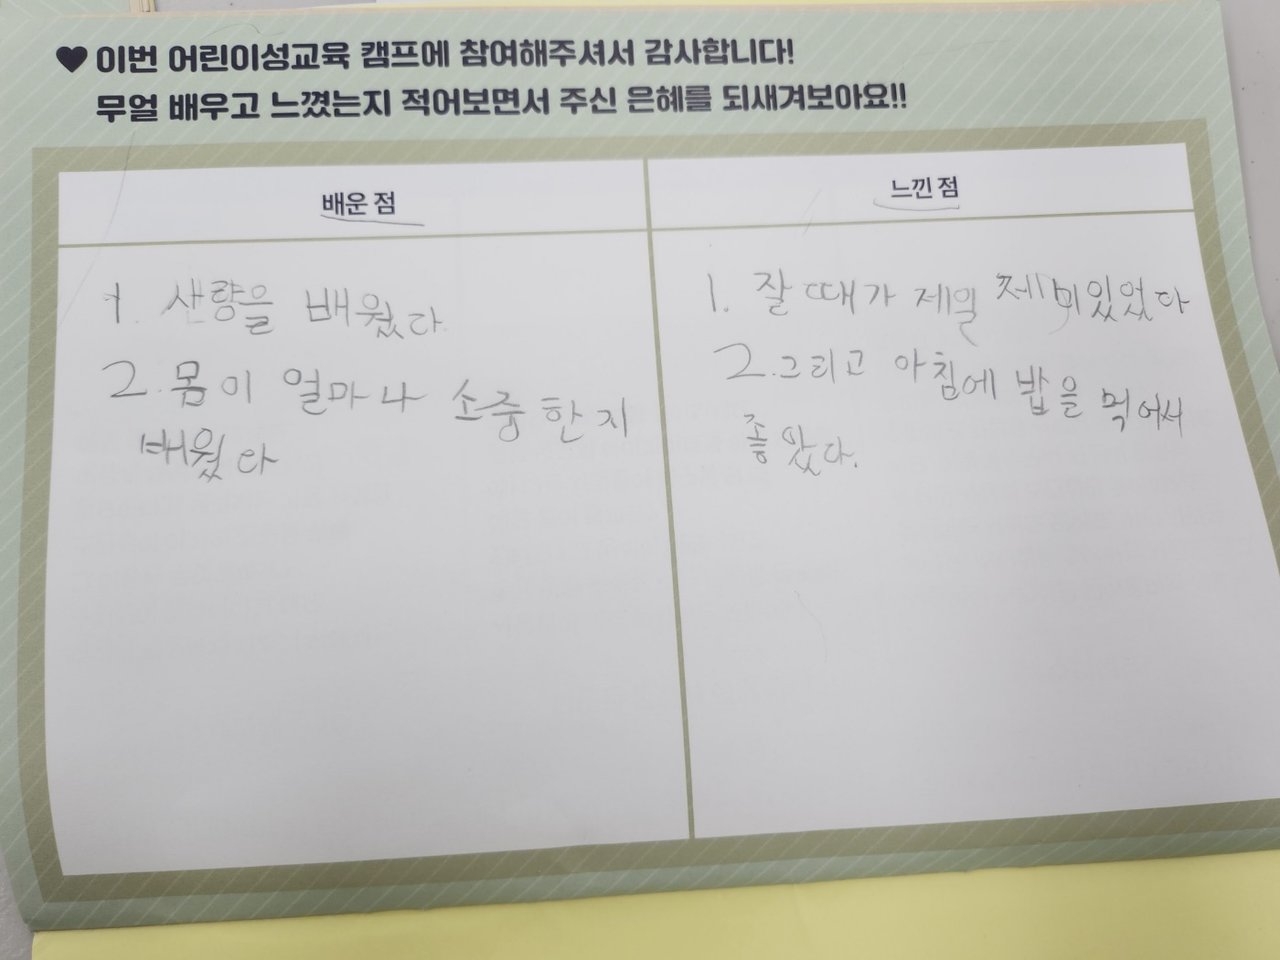 ♥ 이번 어린이성교육 캠프에 참여해주셔서 감사합니다!
무얼 배우고 느꼈는지 적어보면서 주신 은혜를 되새겨보아요!!
배운 점
느낀 점
1. 사량을 배웠다
2. 몸이 얼마나 소중한지
배웠다
1. 잘 때가 제일 재미있었다
2. 그리고 아침에 밥을 먹어서
좋았다.